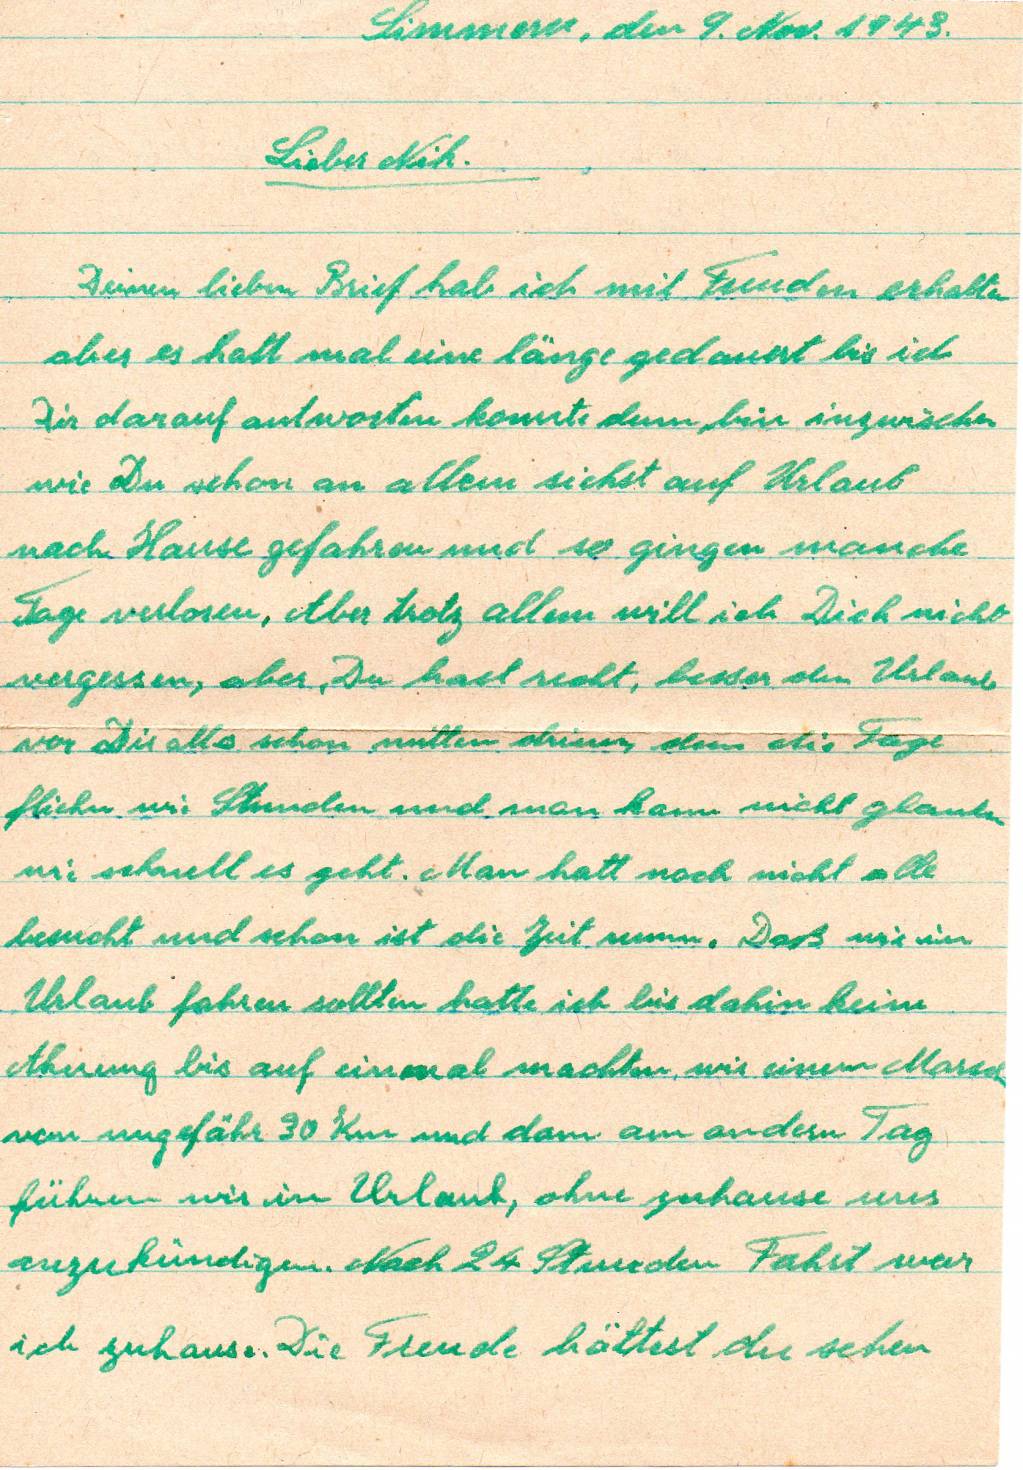 Simmern, den 9. Nov. 1943.
Lieber Nik.
Deinen lieben Brief hab ich mit Freuden erhalten
aber es hatt mal eine länge gedauert bis ich
Dir darauf antworten konnte denn, bin inzwischen
wie Du schon an allem siehst auf Urlaub
nach Hause gefahren und so gingen manche
Tage verloren, Aber trotz allem will ich Dich nicht
vergessen, aber, Du hast recht, besser den Urlaub
vor Dir als schon mitten drinn, denn die Tage
fliehn wie Stunden und man kann nicht glauben
wie schnell es geht. Man hatt noch nicht alle
besucht und schon ist die Zeit rumm. Daß wir in
Urlaub fahren sollten hatte ich bis dahin keine
Ahnung bis auf einmal machten wir einen Marsch
von ungefähr 30 Km und dann am andern Tag
führen wir in Urlaub, ohne zuhause uns
anzukündigen. Nach 24 Stunden Fahrt war
ich zuhause. Die Freude hättest du sehen